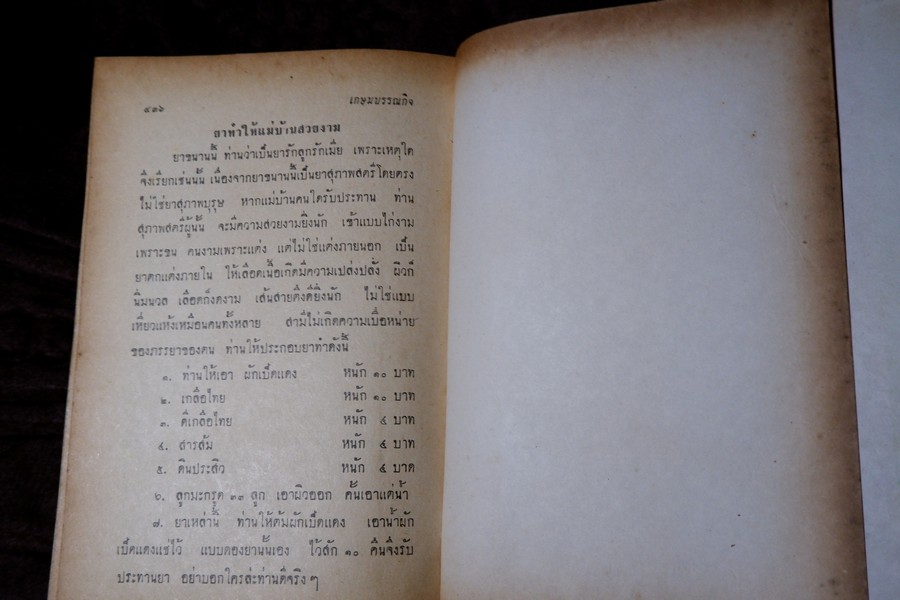 ๔๓๖ เกษมบรรณกิจ
ยาทำให้แม่บ้านสวยงาม
ยาขนานนี้ ท่านว่าเป็นยารักลูกรักเมีย เพราะเหตุใด
จึงเรียกเช่นนั้น เนื่องจากยาขนานนี้เป็นยาสุภาพสตรีโดยตรง
ไม่ใช่ยาสุภาพบุรุษ หากแม่บ้านคนใดรับประทาน ท่าน
สุภาพสตรีผู้นั้น จะมีความสวยงามยิ่งนัก เข้าแบบไก่งาม
เพราะขน คนงามเพราะแต่ง แต่ไม่ใช่แต่งภายนอก เป็น
ยาตกแต่งภายใน ให้เลือดเนื้อเกิดมีความเปล่งปลั่ง ผิวก็
นิ่มนวล เลือดก็งดงาม เส้นสายดึงดียิ่งนัก ไม่ใช่แบบ
เหี่ยวแห้งเหมือนคนทั้งหลาย สามีไม่เกิดความเบื่อหน่าย
ของภรรยาของตน ท่านให้ประกอบยาทำดังนี้
๑. ท่านให้เอา ผักเป็ดแดง หนัก ๑๐ บาท
๒. เกลือไทย หนัก ๑๐ บาท
๓. ดีเกลือไทย หนัก ๔ บาท
๔. สารส้ม หนัก ๔ บาท
๕. ดินประสิว หนัก ๔ บาท
๖. ลูกมะกรูด ๓๓ ลูก เอาผิวออก คั้นเอาแต่น้ำ
๗. ยาเหล่านี้ ท่านให้ต้มผักเป็ดแดง เอาน้ำผัก
เป็ดแดงแช่ไว้ แบบดองยานั้นเอง ไว้สัก ๑๐ คืนจึงรับ
ประทานยา อย่าบอกใครล่ะท่านดีจริง ๆ